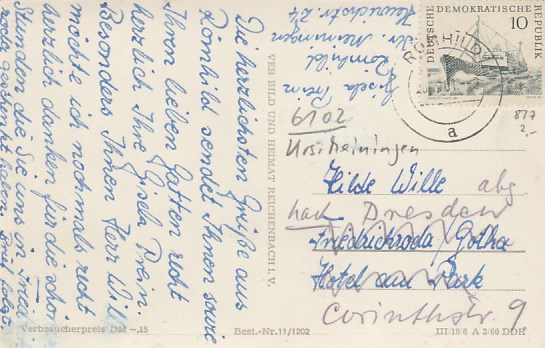 Die herzlichsten Grüße aus
Römhild sendet Ihnen sowie
Ihren lieben Gatten recht
herzlich Ihre Gisela Prein.
Besonders Ihnen Herr Wille
möchte ich nochmals recht
herzlich danken für die schönen
Stunden die Sie uns in
noch geschenkt haben. Brief folgt
VEB BILD UND HEIMAT REICHENBACH I. V.
Gisela Prein
Römhild
Kr. Meiningen
Heurichstr. 24
DEUTSCHE DEMOKRATISCHE REPUBLIK
10
RÖMHILD
a
817
2,-
6102
Urs: Meiningen
Hilde Wille abg
nach Dresden
Friedrichroda/Gotha
Hotel am Park
Corinthstr. 9
Verbraucherpreis DM -,15
Best.-Nr. 11/1202
III/18/6 A 3/60 DDR